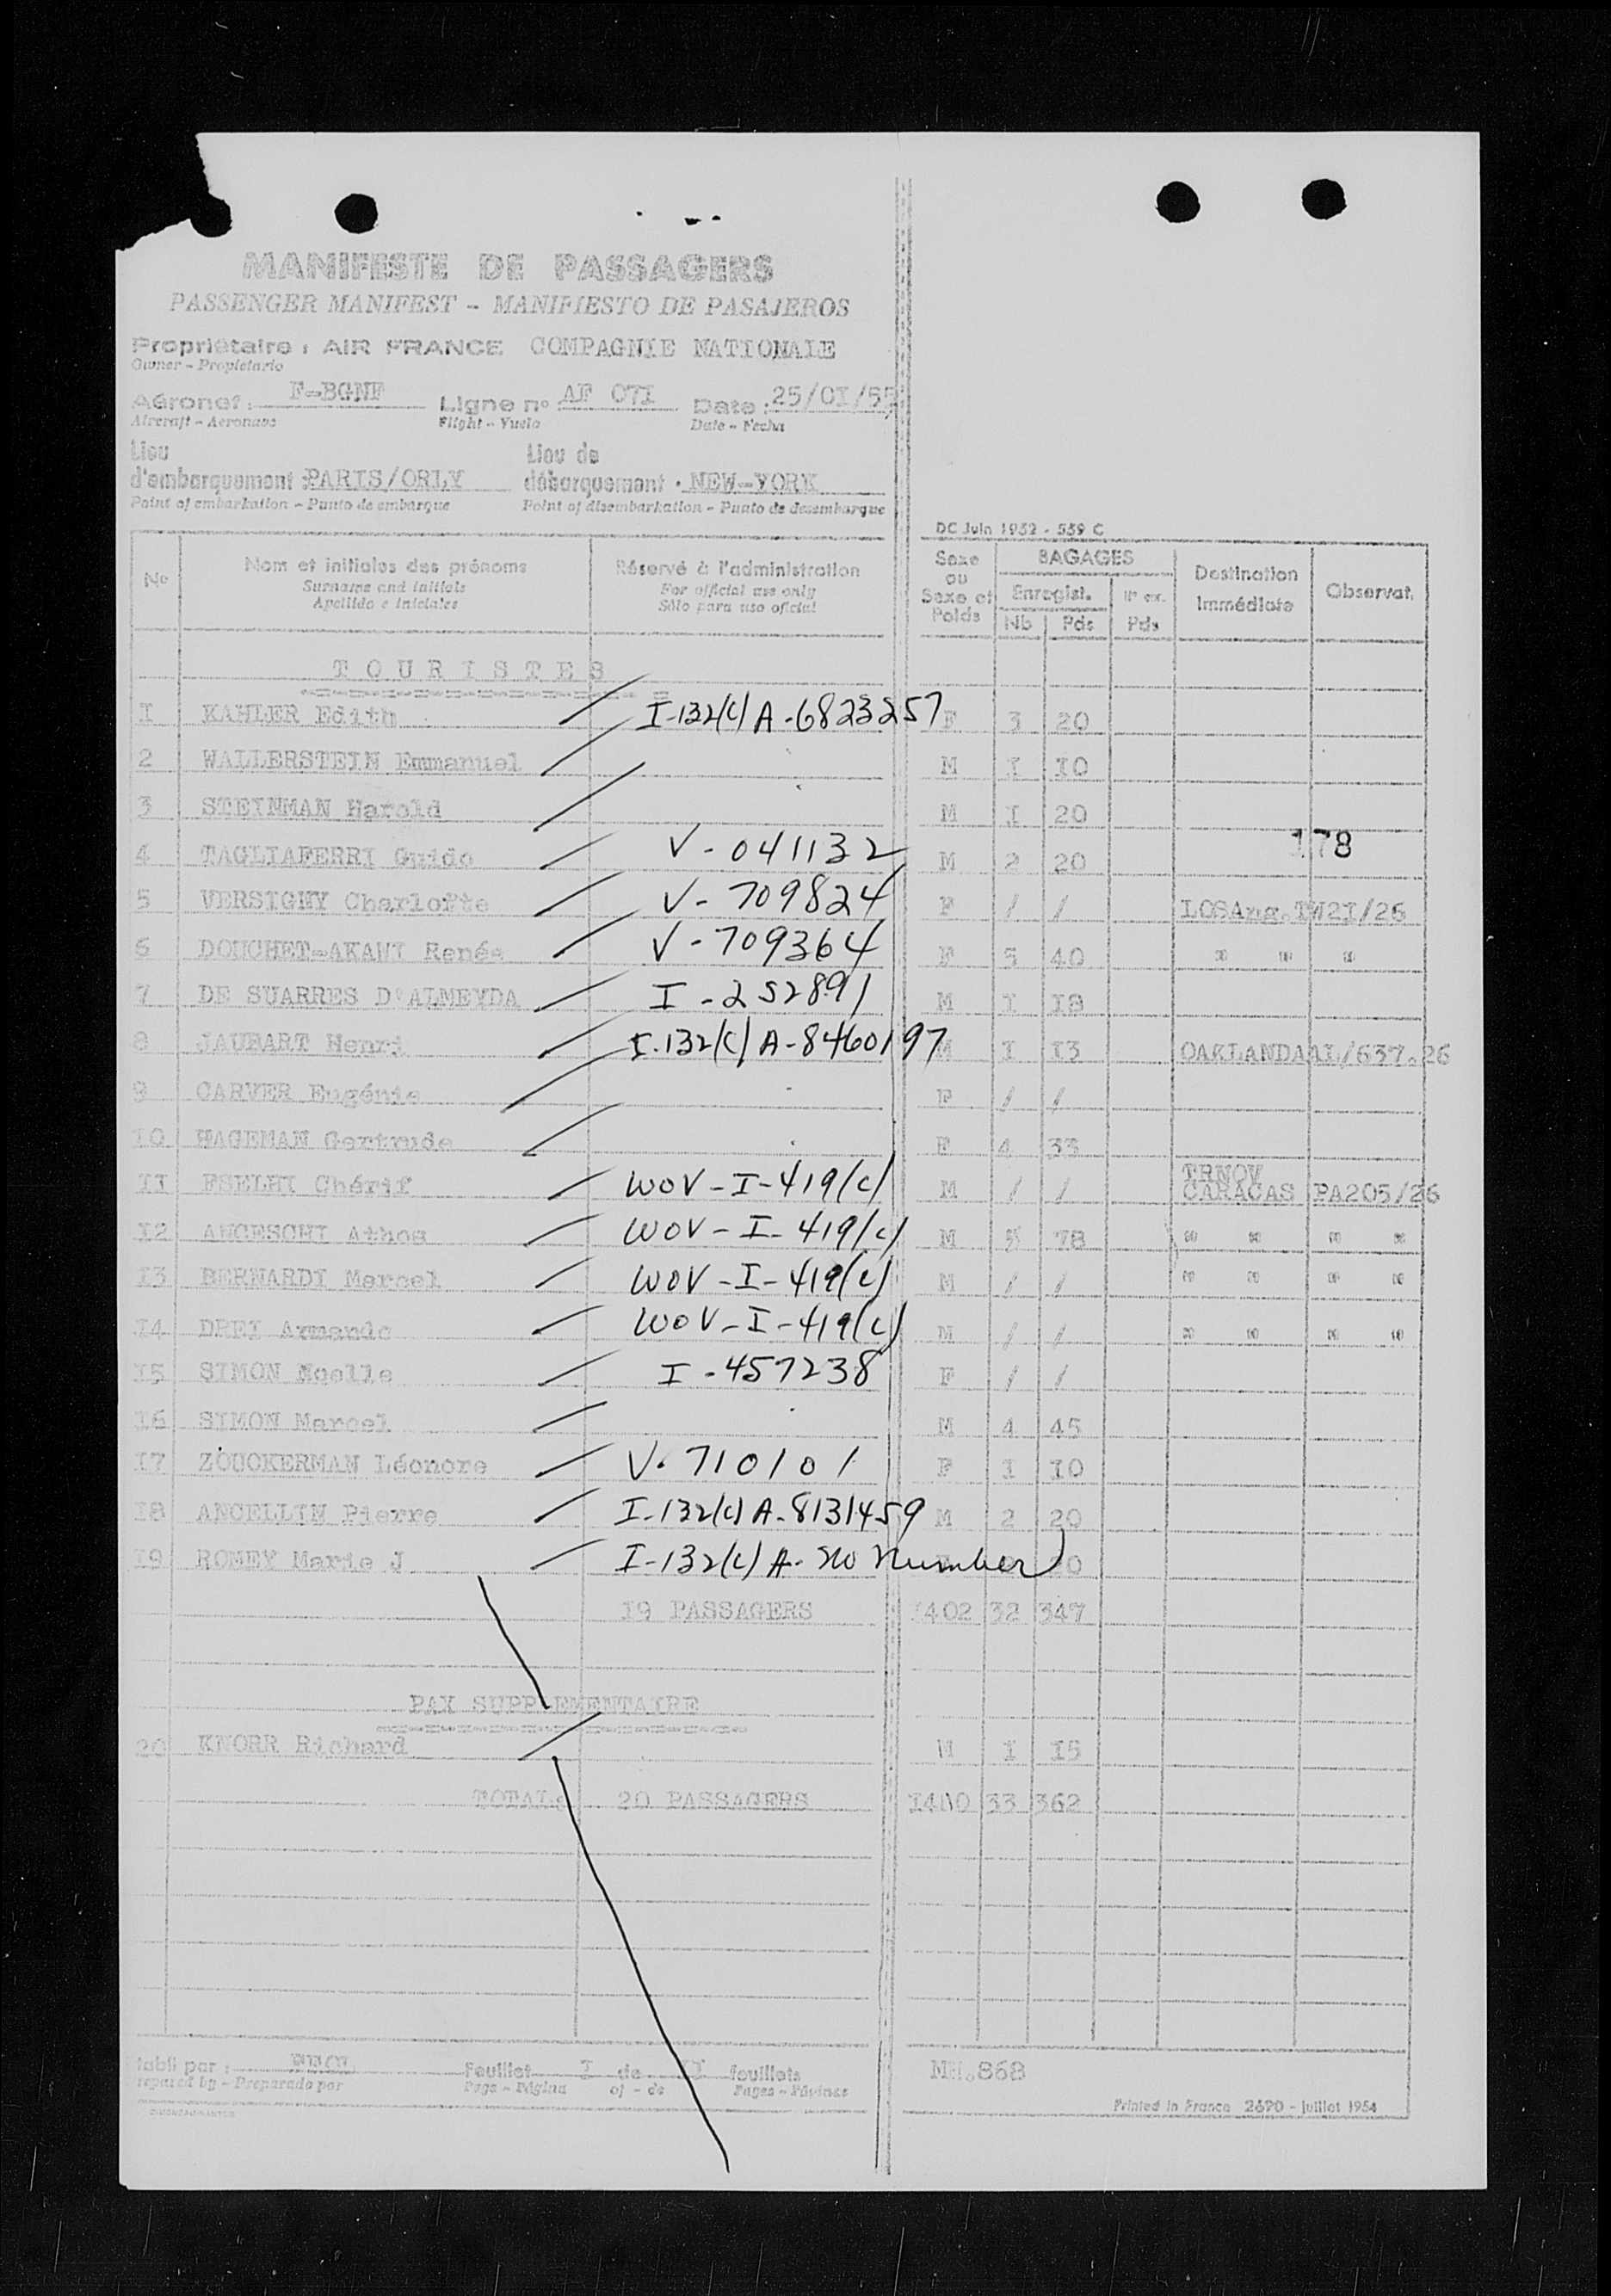 MANIFESTE DE PASSAGERS
PASSENGER MANIFEST - MANIFIESTO DE PASAJEROS
Propriétaire : AIR FRANCE COMPAGNIE NATIONALE
Owner - Propietario
Aéronef : F-BGNF Ligne n° AF 07I Date : 25/0I/55
Aircraft - Aeronave Flight - Vuelo Date - Fecha
Lieu Lieu de
d'embarquement : PARIS/ORLY débarquement : NEW-YORK
Point of embarkation - Punto de embarque Point of disembarkation - Punto de desembarque
DC Juin 1952 - 559 C
N° Nom et initiales des prénoms Réservé à l'administration Sexe ou Sexe et Poids BAGAGES Destination Immédiate Observat.
Surname and initials For official use only Enregist.
Apellido e iniciales Sólo para uso oficial Nb Pds Pds
TOURISTES
I KAHLER Edith I-132(c) A-6823257 F 3 20
2 WALLERSTEIN Emmanuel M I I0
3 STEINMAN Harold M I 20
178
4 TAGLIAFERRI Guido V-041132 M 2 20
5 VERSIGNY Charlotte V-709824 F / / LOSAng.TW2I/26
6 DOUCHET-AKANI Renée V-709364 F 5 40 " " "
7 DE SUARRES D'ALMEYDA I-252891 M I I8
8 JAUBART Henri I-132(c) A-8460197 M I I3 OAKLANDAAL/637.26
9 CARVER Eugénie F / /
I0 HAGEMAN Gertrude F 4 33
II ESELHI Chérif WOV-I-419(c) M / / TRNOV CARACAS PA205/26
I2 ANCESCHI Athos WOV-I-419(c) M 5 78 " " " "
I3 BERNARDI Marcel WOV-I-419(c) M / / " " " "
I4 DREI Armando WOV-I-419(c) M / / " " " "
I5 SIMON Noelle I-457238 F / /
I6 SIMON Marcel M 4 45
I7 ZOUCKERMAN Léonore V-710101 F I I0
I8 ANCELLIN Pierre I-132(c) A-8131459 M 2 20
I9 ROMEY Marie J I-132(c) A-No Number
I9 PASSAGERS I402 32 347
PAX SUPPLEMENTAIRE
20 KNORR Richard M I I5
TOTAL: 20 PASSAGERS 33 362
tabli par : Feuillet I de II feuillets MN.868
repared by - Preparado por Page - Página of - de Pages - Páginas
Printed in France 2690 - juillet 1954